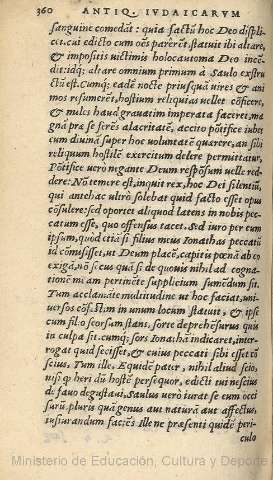 360 ANTIQ. IVDAICARVM
sanguine comedāt: quia factū hoc Deo displi
cet. cui edicto cum oēs parerēt, statuit ibi altare,
& impositis victimis holocautoma Deo ince-
dit: idq; altare omnium primum à Saulo extru
ctū est. Cumq; eadē nocte priusquā vires & ani
mos resumerēt, hostium reliquias vellet cōficere,
& miles haud grauatim imperata faceret, ma
gnā præ se ferēs alacritatē, accito pōtifice iubet
eum diuinā super hoc voluntatē quærere, an sibi
reliquum hostilē exercitum delere permittatur.
Pōtifice vero negante Deum respōsum velle red
dere: Nō temere est, inquit rex, hoc Dei silentiū,
qui antehac ultrò solebat quid facto esset opus
cōsulere: sed oportet aliquod latens in nobis pec-
catum esse, quo offensus tacet. Sed iuro per eum
ipsum, quòd etiā si filius meus Ionathas peccatū
id cōmisisset, ut Deum placē, capitis pœnā ab eo
exigā, nō secus quā si de quouis nihil ad cogna-
tionē mi am pertinēte supplicium sumēdum sit.
Tum acclamāte multitudine ut hoc faciat, uni-
uersos cōsest im in unum locum statuit, & ipse
cum filio seorsum stans, sorte deprehēsurus quis
in culpa sit. cumq; sors Ionathā indicaret, inter-
rogat quid fecisset, & cuius peccati sibi esset cō
scius. Tum ille, Equidē pater, nihil aliud scio,
nisi q̄ heri dū hostē persequor, edicti tui nescius
de fauo degustaui. Saulus verò iurat se eum occi
surū, pluris quā genus aut naturā aut affectus,
iusiurandum faciēs. Ille ne præsenti quidē peri-
culo
Ministerio de Educación, Cultura y Deporte